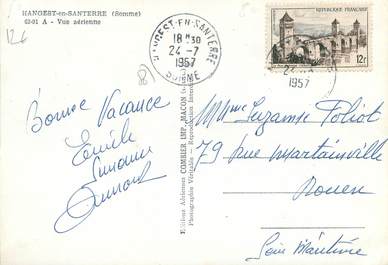 HANGEST-en-SANTERRE (Somme)
62-01 A - Vue aérienne
126
HANGEST-EN-SANTERRE
18H30
24-7
1957
SOMME
RÉPUBLIQUE FRANÇAISE
12F
24-7
1957
Bonne Vacance
Emile
Simone
Editions Aériennes COMBIER IMP. MACON
Photographie Véritable - Reproduction
Mme Suzanne Foliot
79 rue Martainville
Rouen
Seine Maritime